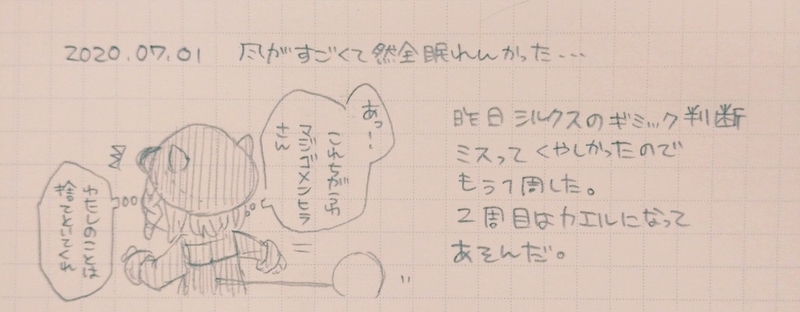 2020.07.01 風がすごくて然全眠れんかった...
あっ!
これちがう
マジゴメンヒラ
さん
わたしのことは
捨てといてくれ
昨日シルクスのギミック判断
ミスってくやしかったので
もう1周した。
2周目はカエルになって
あそんだ。